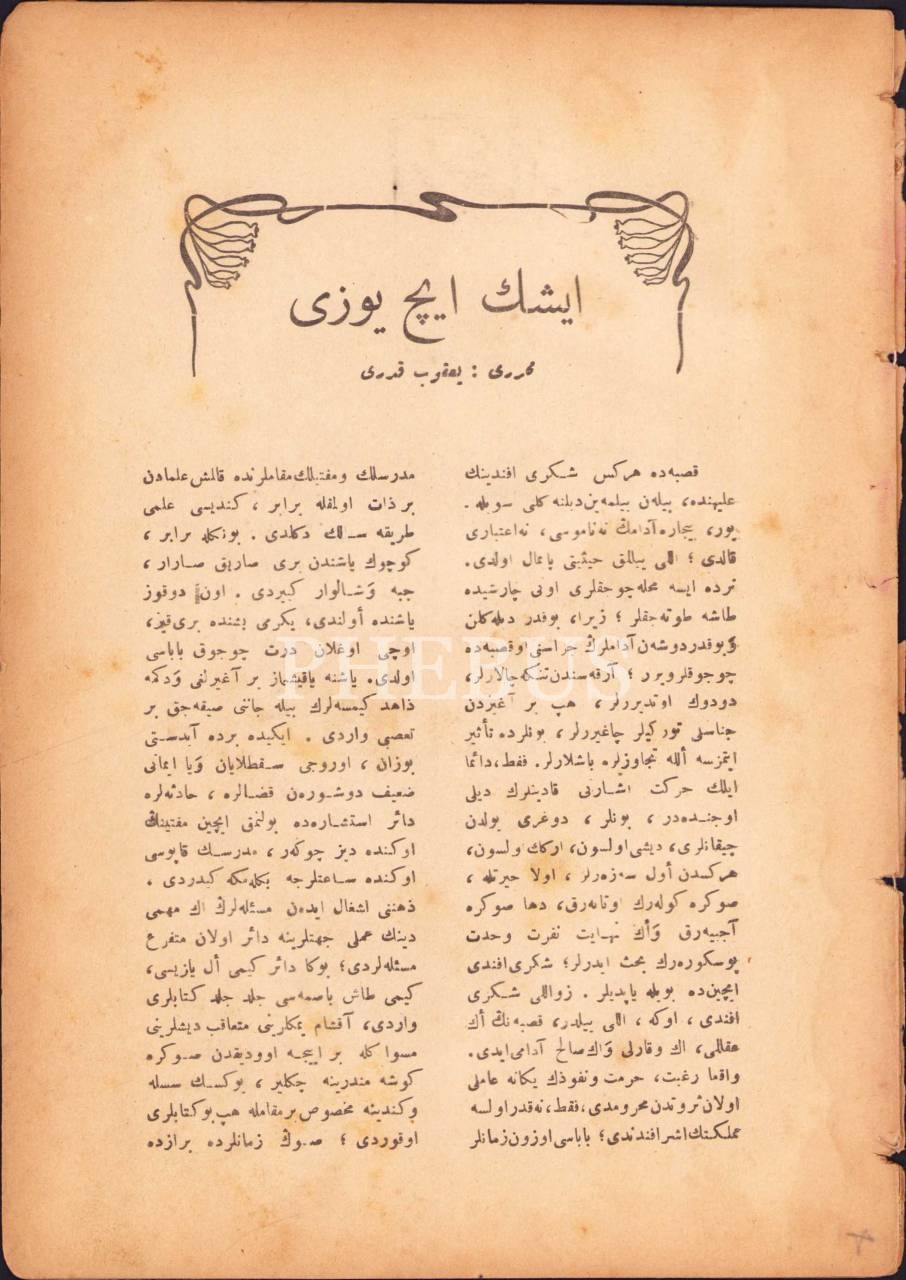 ایشك ایچ یوزی
محرری : یعقوب قدری
قصبه‌ده هركس شـكری افندینك
علیهنده، بیله‌ن بیلمه‌ین دیلنه كلنی سویله‌ـ
یور، بیچاره آدامڭ نه‌ناموسی، نه‌اعتباری
قالدی ؛ اللی ییللق حیثیتی پایمال اولدی.
نرده ایسه محله‌چوجقلری اونی چارشیده
طاشه طوته‌جقلر ؛ زیرا، بوقدر دیله‌كلن
وبوقدردوشه‌ن آداملرڭ جزاسنی اوقصبه‌ده
چوجوقلرویرر ؛ آرقه‌سندن تنكه‌چالارلر،
دودوك اوتدیررلر، هپ بر آغیزدن
جناسلی توركیلر چاغیررلر، بونلرده تأثیر
ایتمزسه ألله تجاوزلره باشلارلر. فقط، دائما
ایلك حركت اشارتی قادینلرك دیلی
اوجنـده‌در ، بونلر ، دوغری یولدن
چیقانلری، دیشی اولسون، اركك اولسون،
هركسدن أول سه‌زه‌رلر ، اولا حیرتله ،
صوكره كوله‌رك اوتانه‌رق، دها صوكره
آجییه‌رق وَأڭ نهـایت نفرت وحدت
پوسكوره‌رك بحث ایدرلر؛ شكری افندی
ایچین‌ده بویله یاپدیلر . زواللی شـكری
افندی ، اوكه ، اللی ییلدر، قصبه‌نڭ أڭ
عقللی، اڭ وقارلی وَاڭ صالح آدامی ایدی.
واقعا رغبت، حرمت ونفوذك یكانه عاملی
اولان ثروتدن محرومدی، فقط، نه‌قدر اولسه
مملكتك اشرافندندی؛ باباسی اوزون زمانلر
مدرسلك ومفتیلك مقاملرنده قالمش علمادن
بر ذات اولمقله برابر ، كندیسی علمی
طریقه سـالك دكلدی . بونكله برابر ،
كوچوك یاشندن بری صاریق صـارار ،
جبه وَشـالوار كییردی . اون دوقوز
یاشنده أولندی، یكرمی بشنده بری‌قیز،
اوچی اوغلان درت چوجوق باباسی
اولدی. یاشنه یاقیشماز بر آغیرلغی وَدكمه
زاهد كیمسه‌لرك بیله جاننی صیقه‌جق بر
تعصبی واردی . ایكیده برده آبدسـتی
بوزان ، اوروجی سـقطلایان وَیا ایمانی
ضعیف دوشـورن قضـالره ، حادثه‌لره
دائر استشـاره‌ده بولنمق ایچین مفتینڭ
اوكنده دیز چوكه‌ر ، مدرسـك قاپوسی
اوكنده سـاعتلرجه بكله‌مكه كیدردی .
ذهننی اشغال ایده‌ن مسئله‌لرڭ اڭ مهمی
دینك عملی جهتلرینه دائر اولان متفرع
مسئله‌لردی؛ بوكا دائر كیمی أل یازیسی،
كیمی طاش باصمه‌سی جلد جلد كتابلری
واردی، آقشام یمكارینی متعاقب دیشلرینی
مسواكله بر اییجـه اوودیقدن صـوكره
كوشه مندرینه چكلیر ، یوكسـك سسله
وكندینه مخصوص بر مقامله هپ بوكتابلری
اوقوردی ؛ صـوڭ زمانلرده برازده
PHEBUS